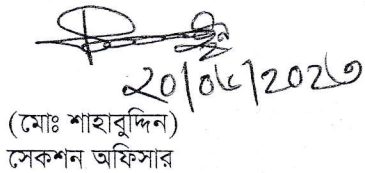 ২০/০৬/২০২৩
(মোঃ শাহাবুদ্দিন)
সেকশন অফিসার